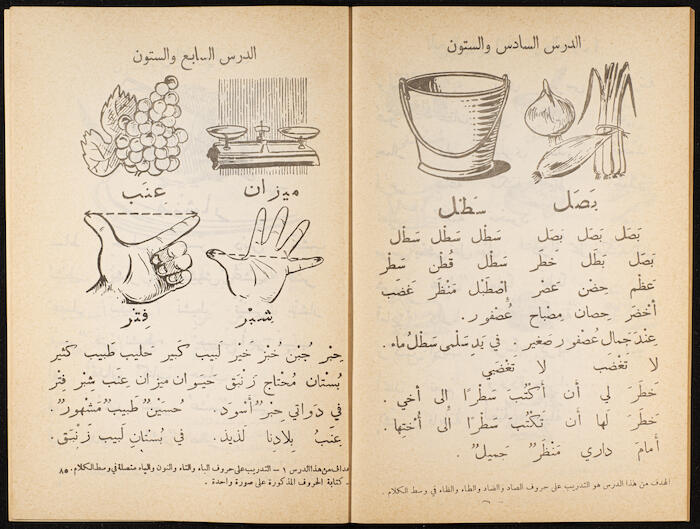 الدرس السادس والستون
بَصَل سَطْل
بَصَل بَصَل بَصَل سَطْل سَطْل سَطْل
بَصَل بَطَل خَطَر سَطْل قُطْن سَطْر
عَظْم حِضْن عَصْر اِصْطَبْل مَنْظَر غَضَب
أخْضَر حِصان مِصْباح عُصْفور.
عِنْدَ جَمال عُصْفور صَغير. في يَدِ سَلْمى سَطْلُ ماء.
لا تَغْضَب لا تَغْضَبي
خَطَرَ لي أن أكْتُبَ سَطْرًا إلى أخي.
خَطَرَ لَها أن تَكْتُبَ سَطْرًا إلى أُخْتِها.
أمامَ داري مَنْظَرٌ جَميلٌ.
الهدف من هذا الدرس هو التدريب على حروف الصاد والضاد والطاء والظاء في وسط الكلام.
الدرس السابع والستون
ميزان عِنَب
شِبْر فِتْر
حِبْر جُبْن خُبْز خَيْر لَبيب كَبير حَليب طَبيب كَثير
بُسْتان مُحْتاج زَنْبَق حَيَوان ميزان عِنَب شِبْر فِتْر
في دَواتي حِبْرٌ أسْوَد. حُسَيْنٌ طَبيبٌ مَشْهورٌ.
عِنَبُ بِلادِنا لَذيذ. في بُسْتانِ لَبيب زَنْبَق.
هداف من هذا الدرس ١ - التدريب على حروف الباء والتاء والنون والياء متصلة في وسط الكلام. ٨٥
- كتابة الحروف المذكورة على صورة واحدة.